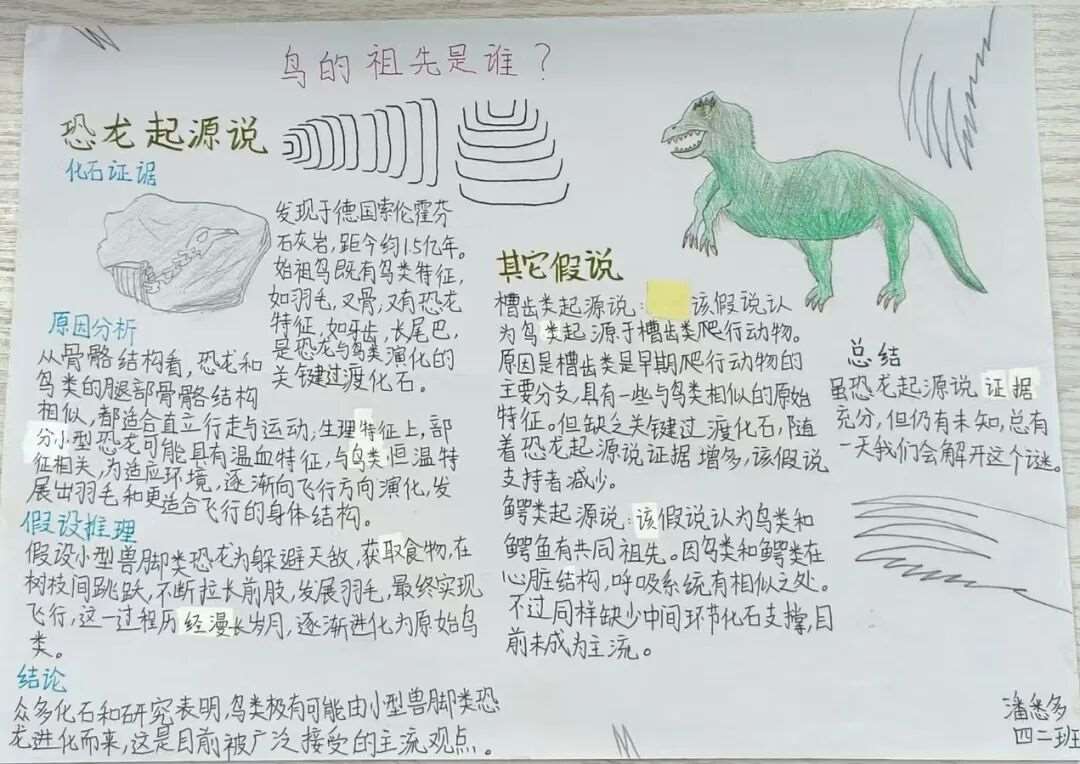 鸟的祖先是谁？
恐龙起源说
化石证据
发现于德国索伦霍芬
石灰岩，距今约1.5亿年。
始祖鸟既有鸟类特征，
如羽毛，叉骨，又有恐龙
特征，如牙齿，长尾巴，
是恐龙与鸟类演化的
关键过渡化石。
原因分析
从骨骼结构看，恐龙和
鸟类的腿部骨骼结构
相似，都适合直立行走与运动；生理特征上，部
分小型恐龙可能具有温血特征，与鸟类恒温特
征相关，为适应环境，逐渐向飞行方向演化，发
展出羽毛和更适合飞行的身体结构。
假设推理
假设小型兽脚类恐龙为躲避天敌，获取食物，在
树枝间跳跃，不断拉长前肢，发展羽毛，最终实现
飞行，这一过程历经漫长岁月，逐渐进化为原始鸟
类。
结论
众多化石和研究表明，鸟类极有可能由小型兽脚类恐
龙进化而来，这是目前被广泛接受的主流观点。
其它假说
槽齿类起源说：该假说认
为鸟类起源于槽齿类爬行动物。
原因是槽齿类是早期爬行动物的
主要分支，具有一些与鸟类相似的原始
特征。但缺乏关键过渡化石，随
着恐龙起源说证据增多，该假说
支持者减少。
鳄类起源说：该假说认为鸟类和
鳄鱼有共同祖先。因鸟类和鳄类在
心脏结构，呼吸系统有相似之处。
不过同样缺少中间环节化石支撑，目
前未成为主流。
总结
虽恐龙起源说证据
充分，但仍有未知，总有
一天我们会解开这个谜。
潘悉多
四二班